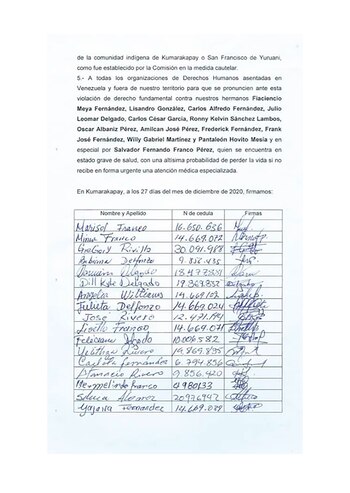 de la comunidad indígena de Kumarakapay o San Francisco de Yuruani,
como fue establecido por la Comisión en la medida cautelar.
5.- A todas los organizaciones de Derechos Humanos asentadas en
Venezuela y fuera de nuestro territorio para que se pronuncien ante esta
violación de derecho fundamental contra nuestros hermanos Flaciencio
Meya Fernández, Lisandro González, Carlos Alfredo Fernández, Julio
Leomar Delgado, Carlos César García, Ronny Kelvin Sánchez Lambos,
Oscar Albaniz Pérez, Amilcan José Pérez, Frederick Fernández, Frank
José Fernández, Willy Gabriel Martínez y Pantaleón Hovito Mesia y en
especial por Salvador Fernando Franco Pérez, quien se encuentra en
estado grave de salud, con una altísima probabilidad de perder la vida si no
recibe en forma urgente una atención médica especializada.
En Kumarakapay, a los 27 días del mes de diciembre de 2020, firmamos:
Nombre y Apellido N de cedula Firmas
Marisol Franco 16.650.656
Franco 14.669.072
Gregory Rivillo 30.091.988
Delfonzo 9.858.435
Delgado 18.477.331
Delgado
Angelica Williams 14.669.102
Julieta Delfonzo 14.669.024
José Rivero
Lisella Franco 14.669.071
Feliciano 10006582
Rivero 19.869.835
Carlita Fernández 6.794.856
Atanacio Rivero 9 856.420
Hermelinda Franco 4980133
Alvarez 20976942
Yajaira Fernandez 14.669.079